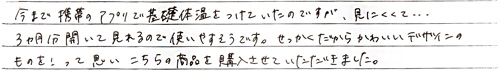 今まで携帯のアプリで基礎体温をつけていたのですが、見にくくて…
3ヶ月分開いて見れるので使いやすそうです。せっかくだからかわいいデザインの
ものを！って思いこちらの商品を購入させていただきました。